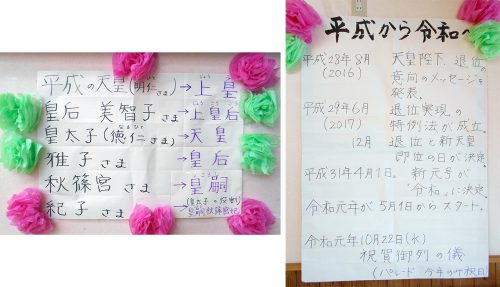 平成の天皇(明仁さま)→上皇
皇后 美智子さま→上皇后
皇太子(徳仁さま)→天皇
雅子さま→皇后
秋篠宮さま→皇嗣
紀子さま→
皇嗣秋篠宮妃
平成から令和へ
平成28年8月 天皇陛下、退位
(2016) の意向のメッセージを
発表。
平成29年6月 退位実現の
(2017) 特例法が成立。
12月 退位と新天皇
即位の日が決定。
平成31年4月1日。新元号が
「令和」に決定。
令和元年が5月1日からスタート。
令和元年10月22日(火)
祝賀御列の儀
(パレード 今年のみ祝日)